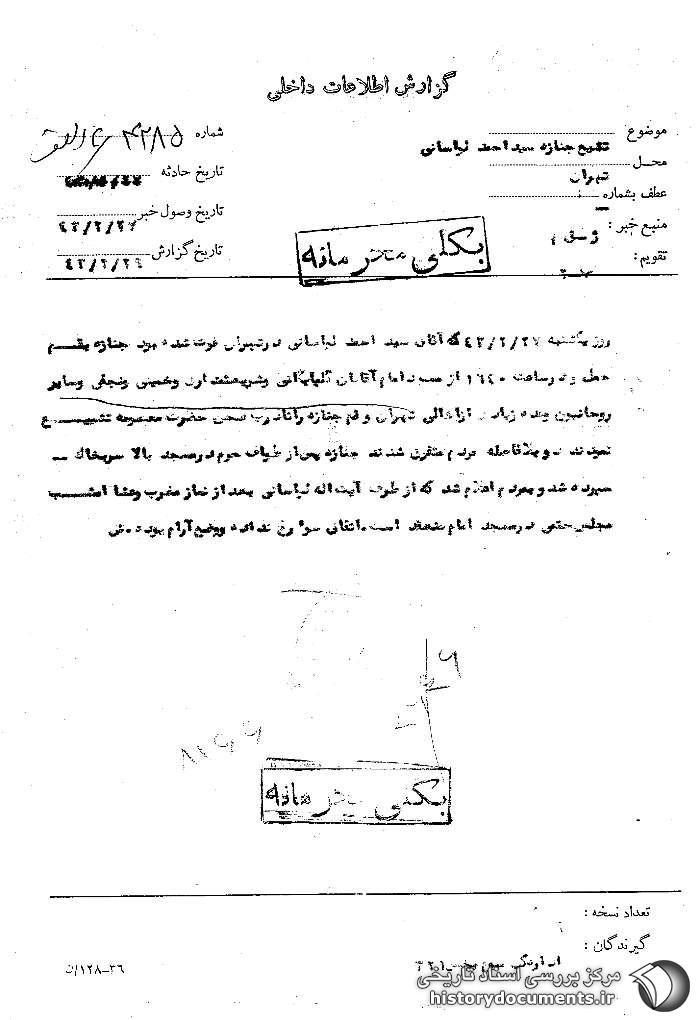 گزارش اطلاعات داخلی
موضوع
تشیع جنازه سید احمد لواسانی
محل
تهران
عطف بشماره
منبع خبر :
تقویم :
شماره ۴۲۸۵
تاریخ حادثه
تاریخ وصول خبر ۴۳/۲/۲۷
تاریخ گزارش ۴۳/۲/۲۹
بکلی محرمانه
روز یکشنبه ۴۳/۲/۲۷ که آقای سید احمد لواسانی در شمیران فوت شده بود جنازه بقم
حمل و در ساعت ۱۶۴۰ از مسجد امام آقایان گلپایگانی و شریعتمداری و خمینی و نجفی و سایر
روحانیون و عده زیادی از اهالی تهران و قم جنازه را تا درب صحن حضرت معصومه تشییع
نمودند و بلافاصله مردم متفرق شدند جنازه پس از طواف حرم در مسجد بالا سر بخاک
سپرده شد و بمردم اعلام شد که از طرف آیت اله لواسانی بعد از نماز مغرب و عشا امشب
مجلس ختمی در مسجد امام منعقد است. اتفاق سوء رخ نداده و وضع آرام بوده
بکلی محرمانه
تعداد نسخه :
گیرندگان :
۳۶-۱۲۸/ن
مرکز بررسی اسناد تاریخی
historydocuments.ir